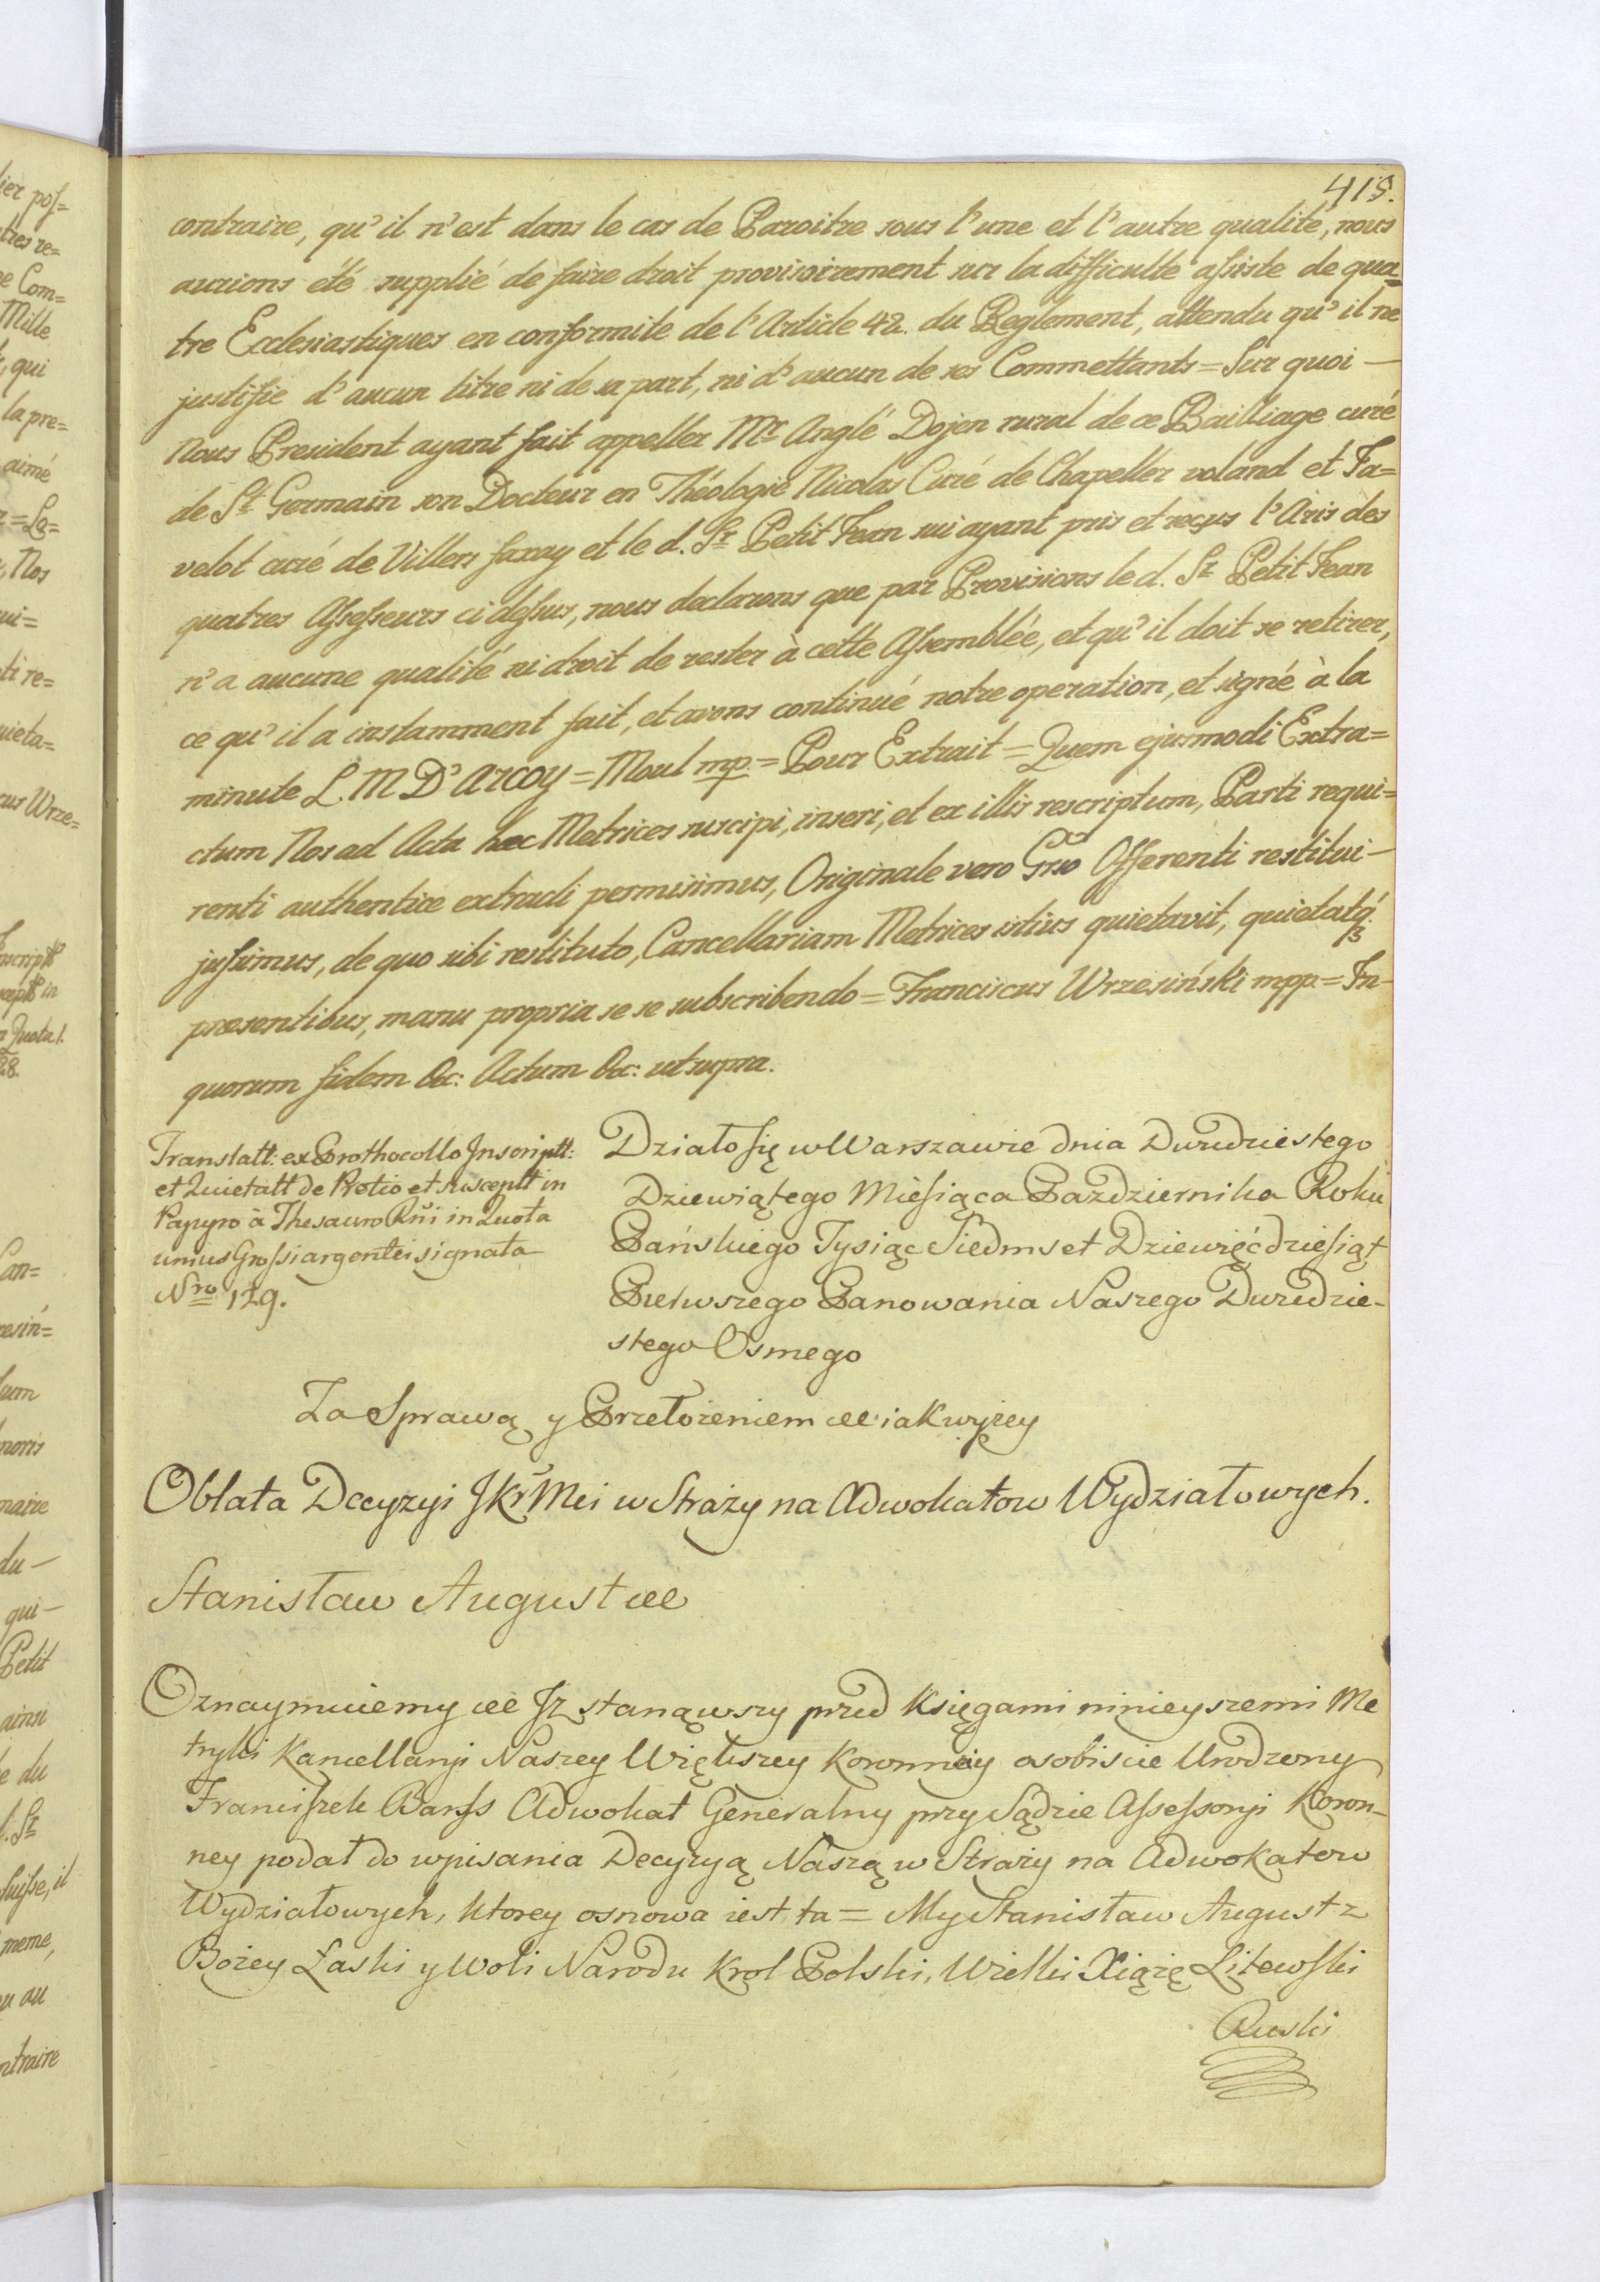 415.
contraire, qu'il n'est dans le cas de Paroitre sous l'une et l'autre qualité, nous
aurions été supplié de faire droit provisoirement sur la difficulté assiste de qua=
tre Ecclesiastiques en conformite de l'Article 42. du Reglement, attendu qu'il ne
justifie d'aucun titre ni de sa part, ni d'aucun de ses Commettants = Sur quoi —
Nous President ayant fait appeller Mr Anglé Dojen rural de ce Bailliage curé
de St Germain son Docteur en Théologie Nicolas Curé de Chapeller voland et Ja=
velot curé de Villers faxay et le d. Sr Petit Jean sui ayant pris et reçus l'Avis des
quatres Assesseurs ci dessus, nous declarons que par Provisions le d. Sr Petit Jean
n'a aucune qualité ni droit de rester à cette Assemblée, et qu'il doit se retirer,
ce qu'il a instamment fait, et avons continué notre operation, et signé à la
minute L. M D'Arcoy = Moul mp. = Pour Extrait = Quem ejusmodi Extra=
ctum Nos ad Acta haec Metrices suscipi, inseri, et ex illis rescriptum, Parti requi=
renti authentice extradi permisimus, Originale vero Gnso Offerenti restitui —
jussimus, de quo sibi restituto, Cancellariam Metrices istius quietavit, quietatq;
praesentibus, manu propria se se subscribendo = Franciscus Wrzesiński mpp. = In
quorum fidem &c: Actum &c: ut supra.
Translatt: ex Prothocollo Inscriptt:
et Quietatt de Protio et suscept in
Papyro à Thesauro Rni in Quota
unius Grossi argentei signata
Nro 129.
Działo się w Warszawie dnia Dwudziestego
Dziewiątego Miesiąca Pazdziernika Roku
Pańskiego Tysiąc Siedmset Dziewięćdziesiąt
Pierwszego Panowania Naszego Dwudzie-
stego Osmego
Za Sprawą y Przełożeniem &c iak wyżey
Oblata Decyzyi JKr Mci w Straży na Adwokatow Wydziałowych.
Stanisław August &c
Oznaymuiemy &c Iż stanąwszy przed Księgami ninieyszemi Me
tryki Kancellaryi Naszey Większey Koronney osobiscie Urodzony
Franciszek Barss Adwokat Generalny przy Sądzie Assessoryi Koron-
ney podał do wpisania Decyzyą Naszą w Straży na Adwokatow
Wydziałowych, ktorey osnowa iest ta = My Stanisław August z
Bożey Łaski y Woli Narodu Krol Polski, Wielki Xiążę Litewski
Ruski